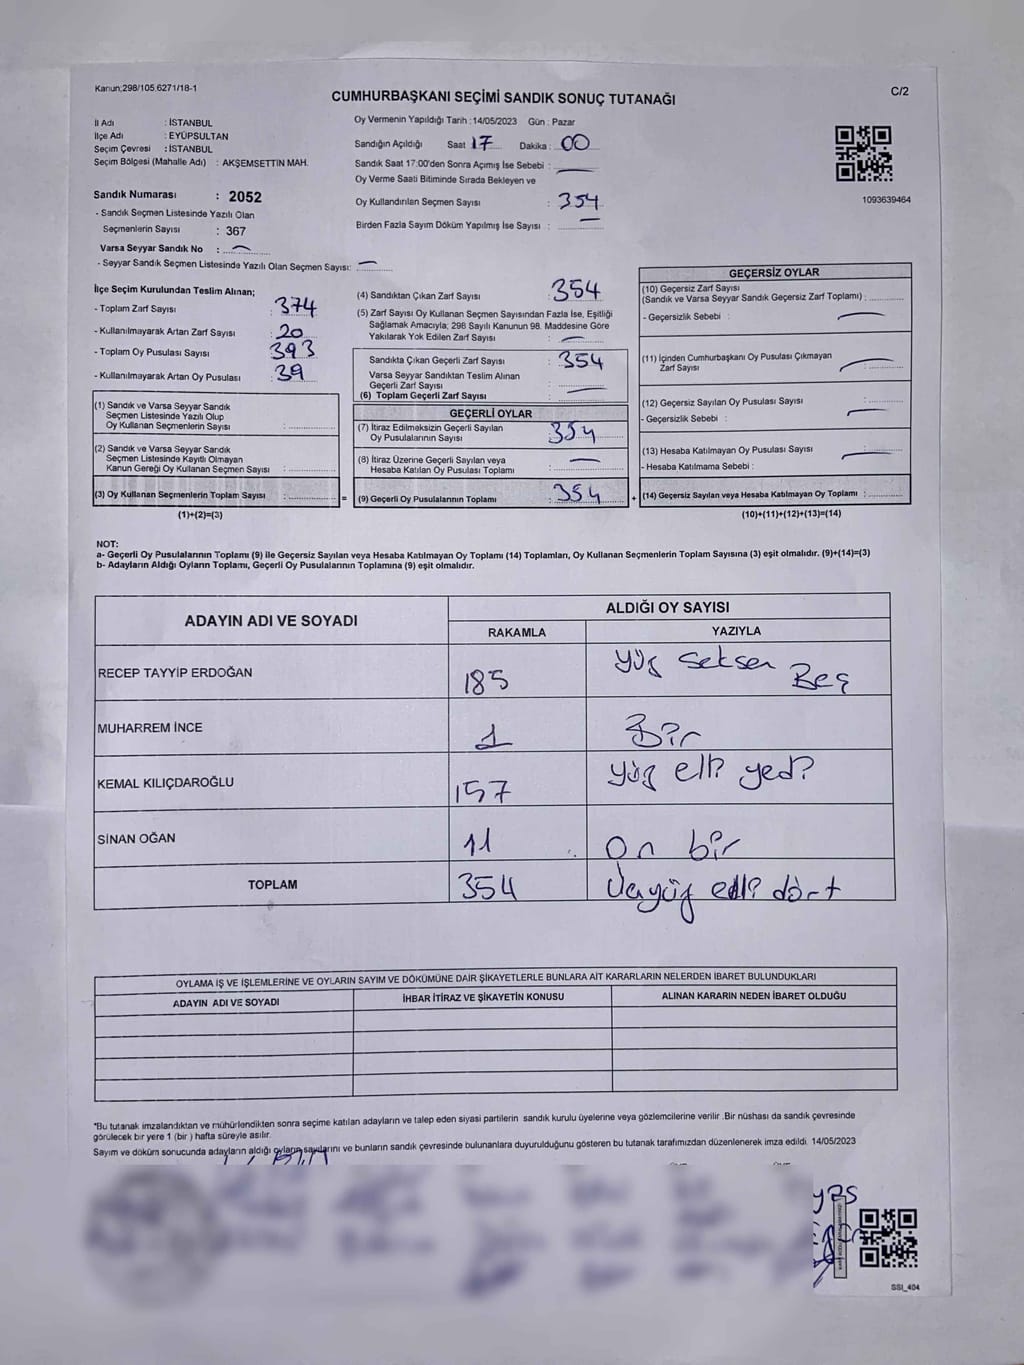 Kanun;298/105.6271/18-1
C/2
CUMHURBAŞKANI SEÇİMİ SANDIK SONUÇ TUTANAĞI
İl Adı : İSTANBUL
İlçe Adı : EYÜPSULTAN
Seçim Çevresi : İSTANBUL
Seçim Bölgesi (Mahalle Adı) : AKŞEMSETTİN MAH.
Sandık Numarası : 2052
- Sandık Seçmen Listesinde Yazılı Olan
Seçmenlerin Sayısı : 367
Varsa Seyyar Sandık No :
- Seyyar Sandık Seçmen Listesinde Yazılı Olan Seçmen Sayısı:
Oy Vermenin Yapıldığı Tarih : 14/05/2023 Gün : Pazar
Sandığın Açıldığı Saat 17 Dakika : 00
Sandık Saat 17:00'den Sonra Açımış İse Sebebi :
Oy Verme Saati Bitiminde Sırada Bekleyen ve
Oy Kullandırılan Seçmen Sayısı : 354
Birden Fazla Sayım Döküm Yapılmış İse Sayısı :
1093639464
İlçe Seçim Kurulundan Teslim Alınan;
- Toplam Zarf Sayısı : 374
- Kullanılmayarak Artan Zarf Sayısı : 20
- Toplam Oy Pusulası Sayısı : 393
- Kullanılmayarak Artan Oy Pusulası : 39
(1) Sandık ve Varsa Seyyar Sandık
Seçmen Listesinde Yazılı Olup
Oy Kullanan Seçmenlerin Sayısı :
(2) Sandık ve Varsa Seyyar Sandık
Seçmen Listesinde Kayıtlı Olmayan
Kanun Gereği Oy Kullanan Seçmen Sayısı :
(3) Oy Kullanan Seçmenlerin Toplam Sayısı : =
(1)+(2)=(3)
(4) Sandıktan Çıkan Zarf Sayısı : 354
(5) Zarf Sayısı Oy Kullanan Seçmen Sayısından Fazla İse, Eşitliği
Sağlamak Amacıyla; 298 Sayılı Kanunun 98. Maddesine Göre
Yakılarak Yok Edilen Zarf Sayısı :
Sandıkta Çıkan Geçerli Zarf Sayısı : 354
Varsa Seyyar Sandıktan Teslim Alınan
Geçerli Zarf Sayısı
(6) Toplam Geçerli Zarf Sayısı :
GEÇERLİ OYLAR
(7) İtiraz Edilmeksizin Geçerli Sayılan
Oy Pusulalarının Sayısı : 354
(8) İtiraz Üzerine Geçerli Sayılan veya
Hesaba Katılan Oy Pusulası Toplamı :
(9) Geçerli Oy Pusulalarının Toplamı : 354 +
GEÇERSİZ OYLAR
(10) Geçersiz Zarf Sayısı
(Sandık ve Varsa Seyyar Sandık Geçersiz Zarf Toplamı) :
- Geçersizlik Sebebi :
(11) İçinden Cumhurbaşkanı Oy Pusulası Çıkmayan
Zarf Sayısı :
(12) Geçersiz Sayılan Oy Pusulası Sayısı :
- Geçersizlik Sebebi :
(13) Hesaba Katılmayan Oy Pusulası Sayısı :
- Hesaba Katılmama Sebebi :
(14) Geçersiz Sayılan veya Hesaba Katılmayan Oy Toplamı :
(10)+(11)+(12)+(13)=(14)
NOT:
a- Geçerli Oy Pusulalarının Toplamı (9) ile Geçersiz Sayılan veya Hesaba Katılmayan Oy Toplamı (14) Toplamları, Oy Kullanan Seçmenlerin Toplam Sayısına (3) eşit olmalıdır. (9)+(14)=(3)
b- Adayların Aldığı Oyların Toplamı, Geçerli Oy Pusulalarının Toplamına (9) eşit olmalıdır.
ADAYIN ADI VE SOYADI
ALDIĞI OY SAYISI
RAKAMLA YAZIYLA
RECEP TAYYİP ERDOĞAN 185 Yüz Seksen Beş
MUHARREM İNCE 1 Bir
KEMAL KILIÇDAROĞLU 157 Yüz elli yedi
SİNAN OĞAN 11 On bir
TOPLAM 354 Üçyüz elli dört
OYLAMA İŞ VE İŞLEMLERİNE VE OYLARIN SAYIM VE DÖKÜMÜNE DAİR ŞİKAYETLERLE BUNLARA AİT KARARLARIN NELERDEN İBARET BULUNDUKLARI
ADAYIN ADI VE SOYADI İHBAR İTİRAZ VE ŞİKAYETİN KONUSU ALINAN KARARIN NEDEN İBARET OLDUĞU
*Bu tutanak imzalandıktan ve mühürlendikten sonra seçime katılan adayların ve talep eden siyasi partilerin sandık kurulu üyelerine veya gözlemcilerine verilir .Bir nüshası da sandık çevresinde
görülecek bir yere 1 (bir ) hafta süreyle asılır.
Sayım ve döküm sonucunda adayların aldığı oyların sayılarını ve bunların sandık çevresinde bulunanlara duyurulduğunu gösteren bu tutanak tarafımızdan düzenlenerek imza edildi. 14/05/2023
SSI_404